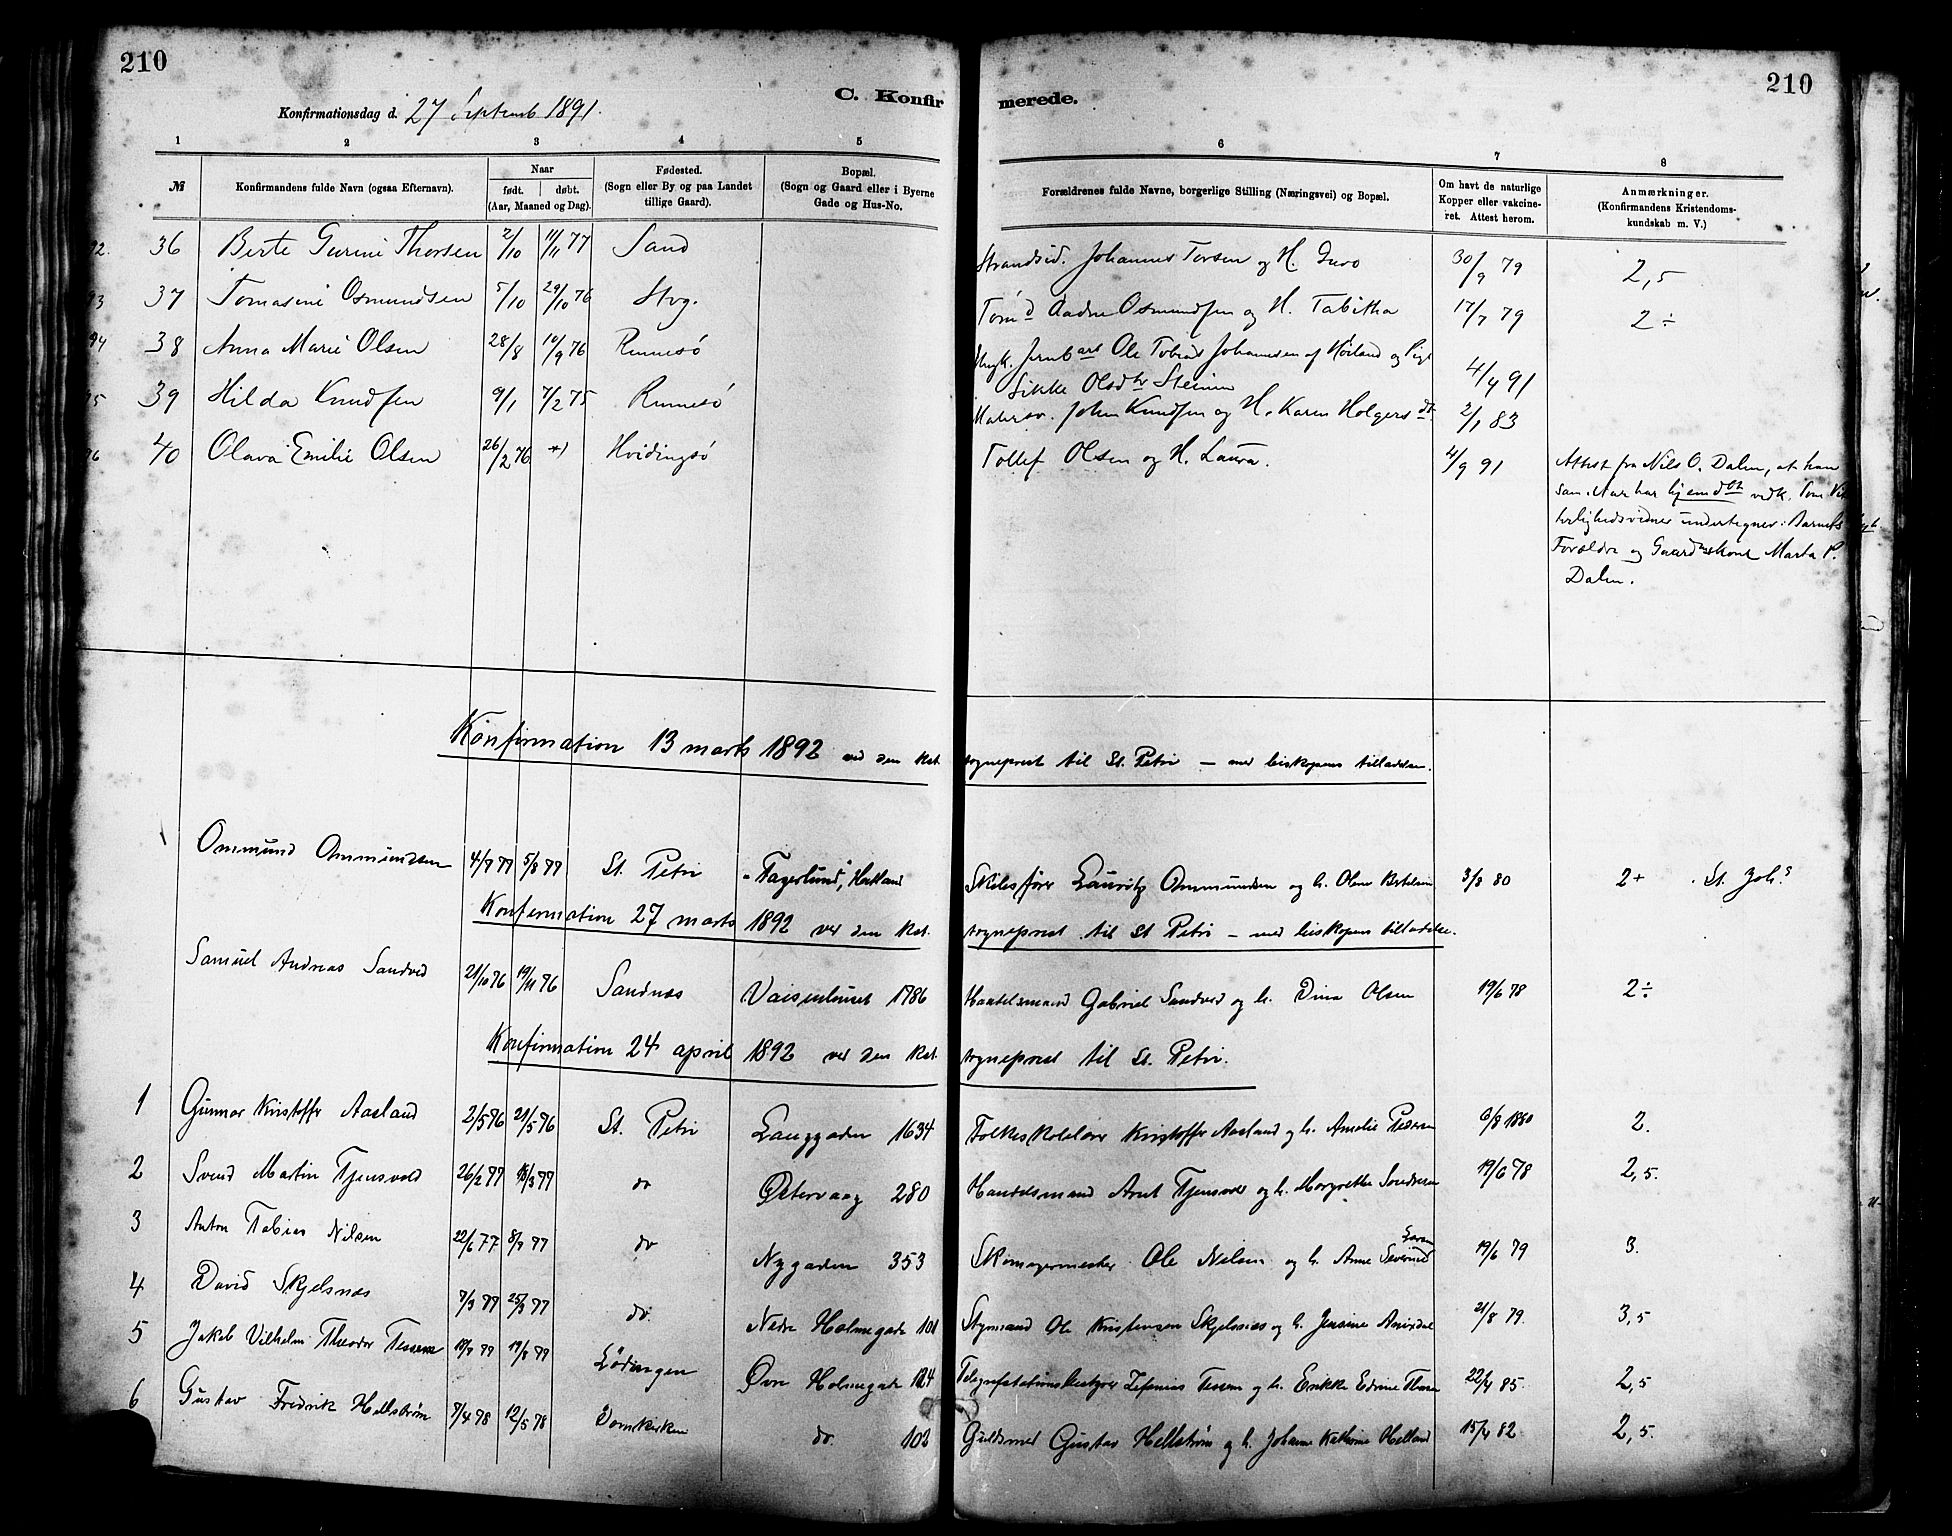 210
210
C. Konfirmerede.
Konfirmationsdag d. 27 Septemb 1891.
1 2 3 4 5 6 7 8
№
Konfirmandens fulde Navn (ogsaa Efternavn).
Naar
født. døbt.
(Aar, Maaned og Dag).
Fødested.
(Sogn eller By og paa Landet
tillige Gaard).
Bopæl.
(Sogn og Gaard eller i Byerne
Gade og Hus-No.
Forældrenes fulde Navne, borgerlige Stilling (Næringsvei) og Bopæl.
Om havt de naturlige
Kopper eller vakcine-
ret. Attest herom.
Anmærkninger.
(Konfirmandens Kristendoms-
kundskab m. V.)
36 Berte Gurine Thorsen 2/10 11/11 77 Sand Strandsid. Johannes Torsen og H. Guro 30/9 79 2,5
37 Tomasine Osmundsen 5/10 29/10 76 Stvg. Aadne Osmundsen og H. Tabitha 17/7 79 2÷
38 Anna Marie Olsen 28/8 10/9 76 Rennesö Ungk. Ole Tobias Johannesen af Höiland og Pige
Olsdtr 4/9 91
39 Hilda Knudsen 9/1 7/2 75 Rennesö John Knudsen og H. Karen Holgersdt. 2/1 83
40 Olava Emilie Olsen 26/2 76 *) Hvidingsö Tollef Olsen og H. Laura. 4/9 91 Attest fra Nils O. Dalen, at han
har hjemdbt
undertegner: Barnets
Forældre og Marta P.
Dalen.
Konfirmation 13 marts 1892 ved den kst. sogneprest til St. Petri — med biskopens tilladelse.
Ommund Ommundsen 4/7 77 5/8 77 St. Petri "Fagerlund", Hetland Lauritz Ommundsen og h. Olene Bertelsen 3/8 80 2+ St. Joh.s
Konfirmation 27 marts 1892 ved den kst. sogneprest til St Petri — med biskopens tilladelse.
Samuel Andreas Sandved 21/10 76 19/11 76 Sandnæs Vaisenhuset 1786 Handelsmand Gabriel Sandved og h. Dina Olsen 19/6 78 2÷
Konfirmation 24 april 1892 ved den kst. sogneprest til St. Petri.
1 Gunnar Kristoffer Aasland 2/5 76 21/5 76 St. Petri Langgaden 1634 Folkeskolelærer Kristoffer Aasland og h. Amalie Pedersen 6/8 1880 2.
2 Svend Martin Tjensvold 26/2 77 77 do Østervaag 280 Handelsmand Arnt Tjensvold og h. Margrethe 19/6 78 2,5.
3 Anton Tobias Nilsen 22/6 77 8/7 77 do Nygaden 353 Skomagermester Ole Nilsen og h. Anne 19/6 79 3.
4 David Skjelsnæs 7/3 77 25/3 77 do. Nedre Holmegade 101 Styrmand Ole Kristensen Skjelsnæs og h. Jensine 21/8 79. 3,5
5 Jakob Vilhelm Theodor Tessem 77 19/8 77 Lödingen Øvre Holmegade Telegrafstationsbestyrer Tessem og h. Erikke 22/4 85. 2,5
6 Gustav Fredrik Hellström 7/4 78 12/5 78 Domkirken do. 102 Guldsmed Gustav Hellström og h. Johanne Kathrine Helland 15/4 82 2,5.